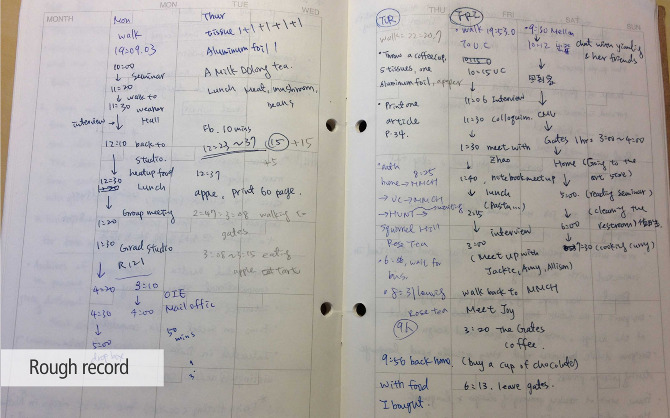 MONTH
MON
TUE
WED
Mon
walk
19=09.03
10=00
Seminar
11=20
walk to
11=30 weaner
interview
Hall
12=10 back to
studio.
12=30 heatup food
Lunch
1=20 Group meeting
1=30 Grad studio
R121
4=20 3=10
4=30 4=00
5=00
OIE
Mail offic
50
mins
Thur
tissue 1+1+1+1+1
Aluminum foil 1
A Milk Oolong tea.
Lunch meat, mushroom,
beans
Fb. 10 mins
12=22~37 15 +15
+5
12=37
apple, print 60 page.
2=47-3=08 walking to
gates
3=05~3=15 eating
apple tart
Rough record
THU
FRI
SAT
SUN
TUR
walk = 22=20.7
Throw a coffee cup,
5 tissues, one
aluminum foil, apper
Print one
article
P.34.
8=25
home→MMCH
→UC→MMCH
→HUNT→ meeting
Squirrel Hill
Rose Tea
wait for
bus.
Rose tea
9h
9=56 back home
with food
I bought.
FRI
walk 19=53.0
To UC
10=15 UC
11=06 Interview
11=30 colloquim.
1=30 meet with
Zhao
1=40, notebook meet up
lunch
(Pasta...)
2=15
interview
3=00
(Meet up with
Jackie, Amy, Allism)
walk back to MMCH
Meet Joy
3=20 The Gates
coffee.
(buy a cup of chocolate)
6=13. leave gates.
9=30 Mellm
10-12
chat with yianling
& her friends
CMU
Gates 1 hrs 3=00~4=00
Home (Going to the
art store)
5=00. (reading seminar)
(cleaning the
6=00 restroom)
7=30 (cooking curry)